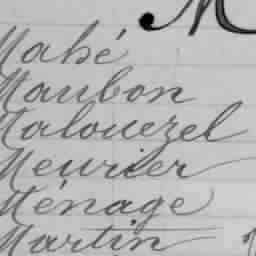 M
Mahé
Maubon
Malouezel
Meurier
Ménage
Martin